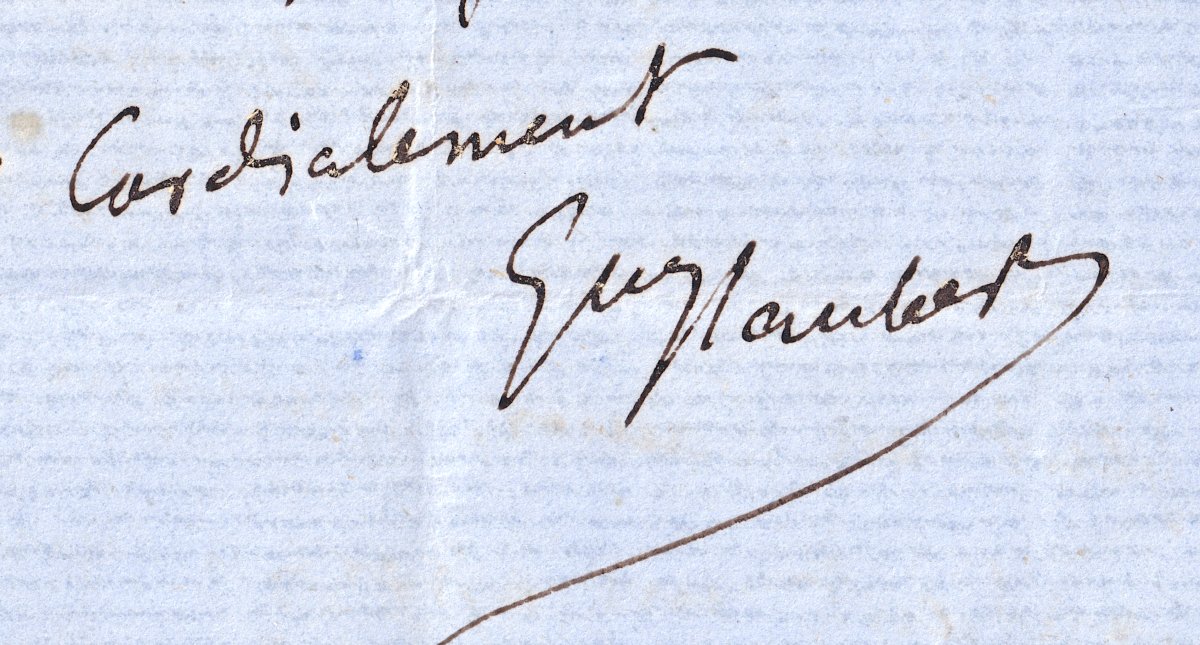 Cordialement
Gve Flaubert